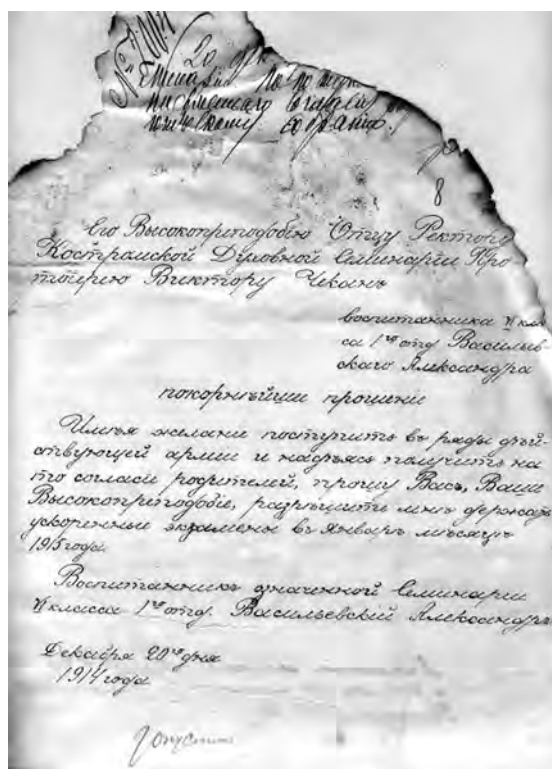 20 дек.
Его Высокопреподобию Отцу Ректору
Костромской Духовной Семинарии Про
тоіерею Виктору Чекану
воспитанника VI клас
са 1го отд. Васильев-
скаго Александра
покорнѣйшее прошеніе
Имѣя желаніе поступить въ ряды дѣй
ствующей арміи и надѣясь получить на
то согласіе родителей, прошу Васъ, Ваше
Высокопреподобіе, разрѣшить мнѣ держать
ускоренные экзамены въ Январѣ мѣсяцѣ
1915 года.
Воспитанникъ означенной Семинаріи
VI класса 1го отд. Васильевскій Александръ
Декабря 20го дня
1914 года
Допустить
8